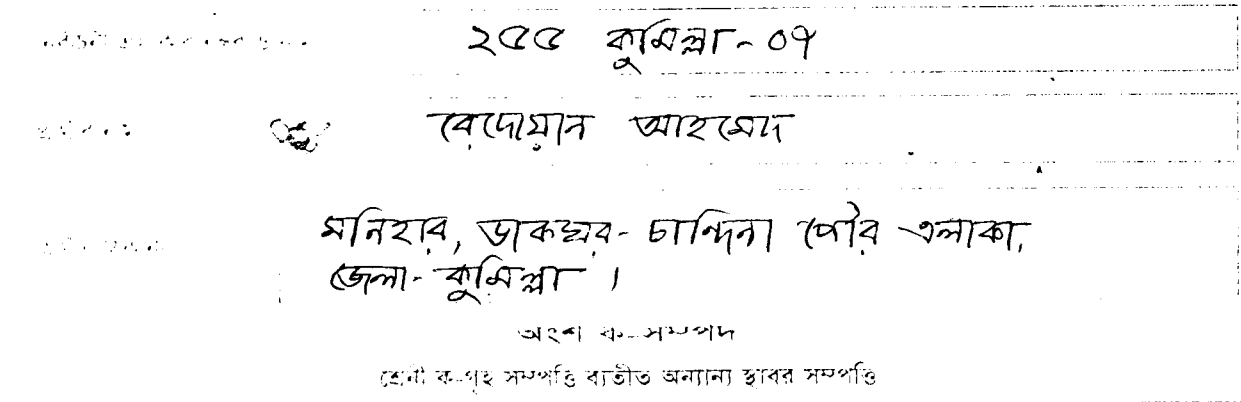 ২৫৫ কুমিল্লা-০৭
রেদোয়ান আহমেদ
মনিহার, ডাকঘর- চান্দিনা পৌর এলাকা,
জেলা- কুমিল্লা ।
অংশ ক-সম্পদ
শ্রেনী ক-গৃহ সম্পত্তি ব্যতীত অন্যান্য স্থাবর সম্পত্তি